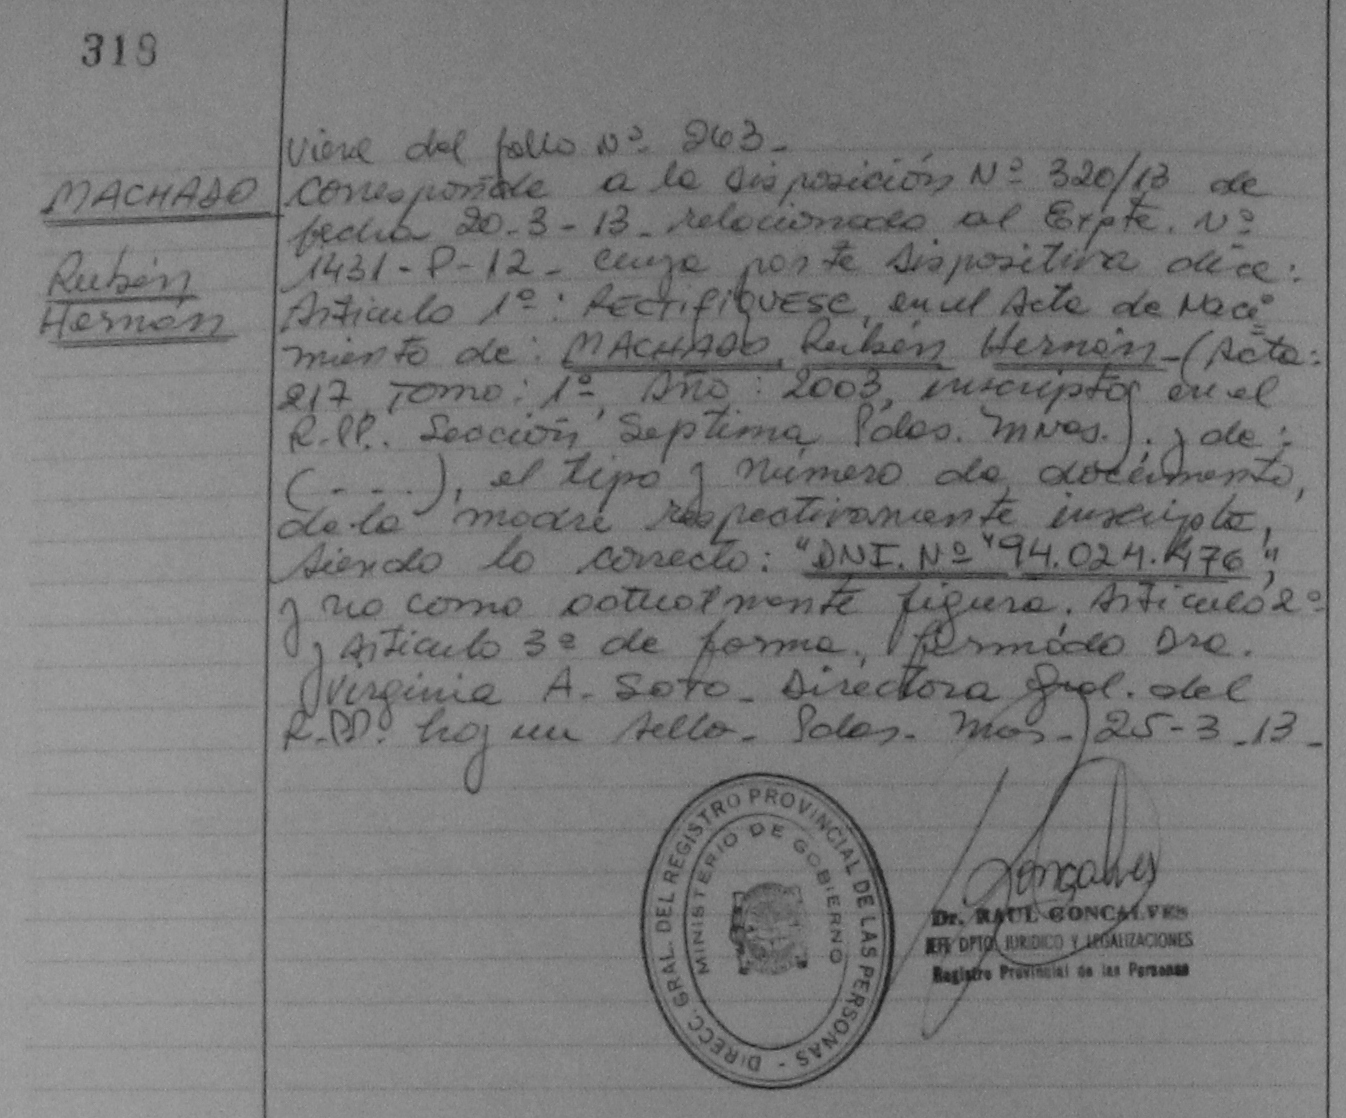 319
viene del folio Nº 263-
MACHADO
corresponde a la disposición Nº 320/13 de
fecha 20-3-13- relacionado al Expte. Nº
Rubén
1431-P-12- cuya parte dispositiva dice:
Hernán
Artículo 1º: RECTIFIQUESE, en el Acta de Naci=
miento de: MACHADO, Rubén Hernán-(Acta:
217, Tomo: 1º, Año: 2003, inscripto, en el
R.PP. Sección Septima Pdas. Mnes.). y de:
(....), el tipo y número de documento,
de la madre respectivamente inscripta,
siendo lo correcto: "DNI. Nº "94.024.476",
y no como actualmente figura. Artículo 2º
y Artículo 3º de forma. Firmádo Dra.
Virginia A. Soto- Directora Gral. del
R.PP. hay un sello- Pdas. Mnes- 25-3-13-
DIRECC. GRAL. DEL REGISTRO PROVINCIAL DE LAS PERSONAS -
MINISTERIO DE GOBIERNO
Gonçalves
Dr. RAUL GONCALVES
JEFE DPTO. JURIDICO Y LEGALIZACIONES
Registro Provincial de las Personas